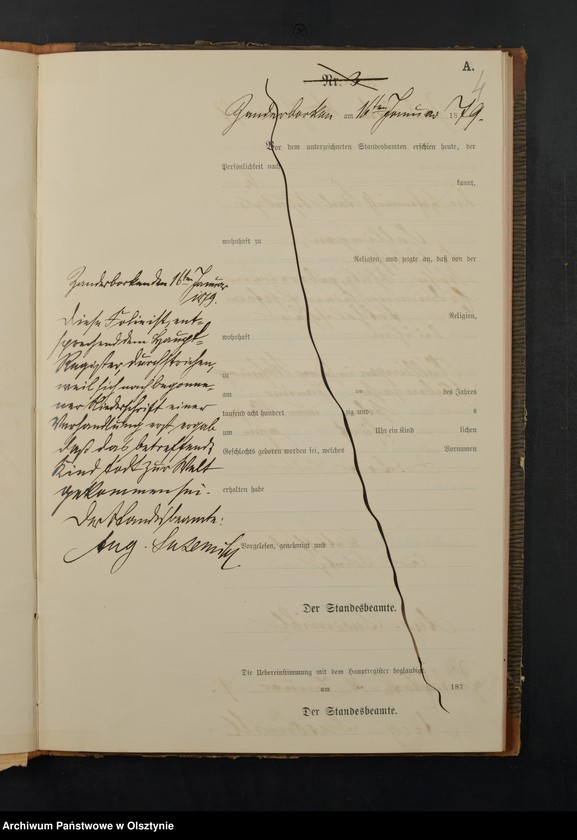 A.
4
Nr. 3
Zanderborken am 16ten Januar 1879.
Vor dem unterzeichneten Standesbeamten erschien heute, der
Persönlichkeit nach
kannt,
wohnhaft zu
Religion, und zeigte an, daß von der
Religion,
wohnhaft
zu
am ten des Jahres
tausend acht hundert zig und s
um Uhr ein Kind lichen
Geschlechts geboren worden sei, welches Vornamen
erhalten habe
Vorgelesen, genehmigt und
Der Standesbeamte.
Die Uebereinstimmung mit dem Hauptregister beglaubigt.
am ten 187
Der Standesbeamte.
Zanderborken den 16ten Januar
1879.
Diese Folie ist, ent-
sprechend dem Haupt-
Register, durchstrichen,
weil sich nach begonne-
ner Niederschrift einer
Verhandlung erst ergab
daß das betreffende
Kind todt zur Welt
gekommen sei.
Der Standesbeamte:
Aug.
Archiwum Państwowe w Olsztynie